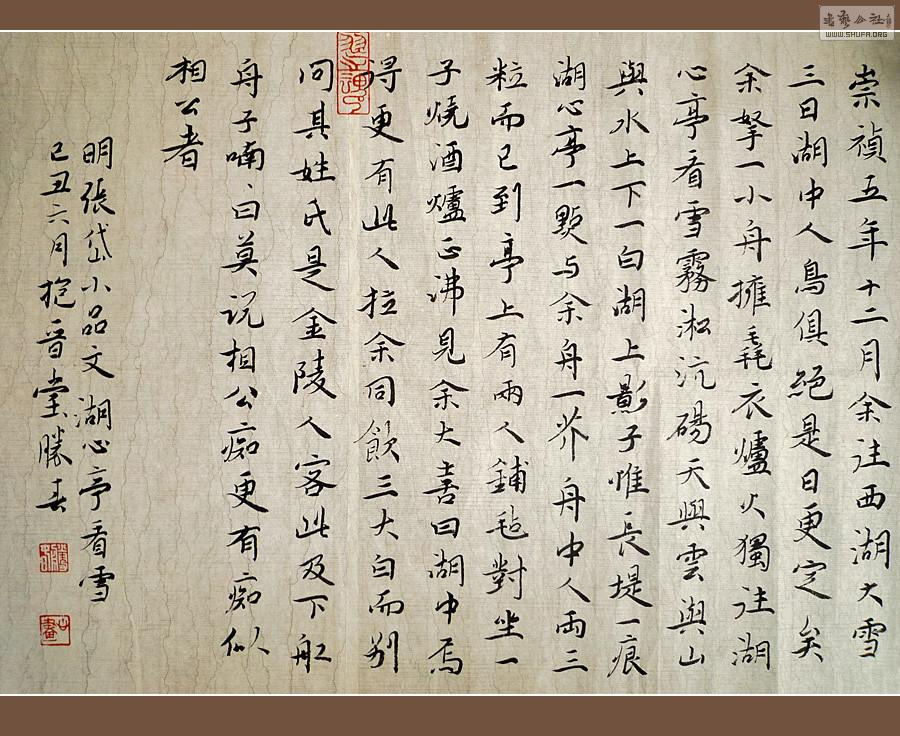 崇禎五年十二月余住西湖大雪
三日湖中人鳥俱絕是日更定矣
余拏一小舟擁毳衣爐火獨往湖
心亭看雪霧淞沆碭天與雲與山
與水上下一白湖上影子惟長堤一痕
湖心亭一點与余舟一芥舟中人兩三
粒而已到亭上有兩人鋪氈對坐一
子燒酒爐正沸見余大喜曰湖中焉
得更有此人拉余同飲三大白而別
问其姓氏是金陵人客此及下船
舟子喃、曰莫说相公痴更有痴似
相公者
明張岱小品文湖心亭看雪
己丑六月抱晉堂勝春
WWW.SHUFA.ORG